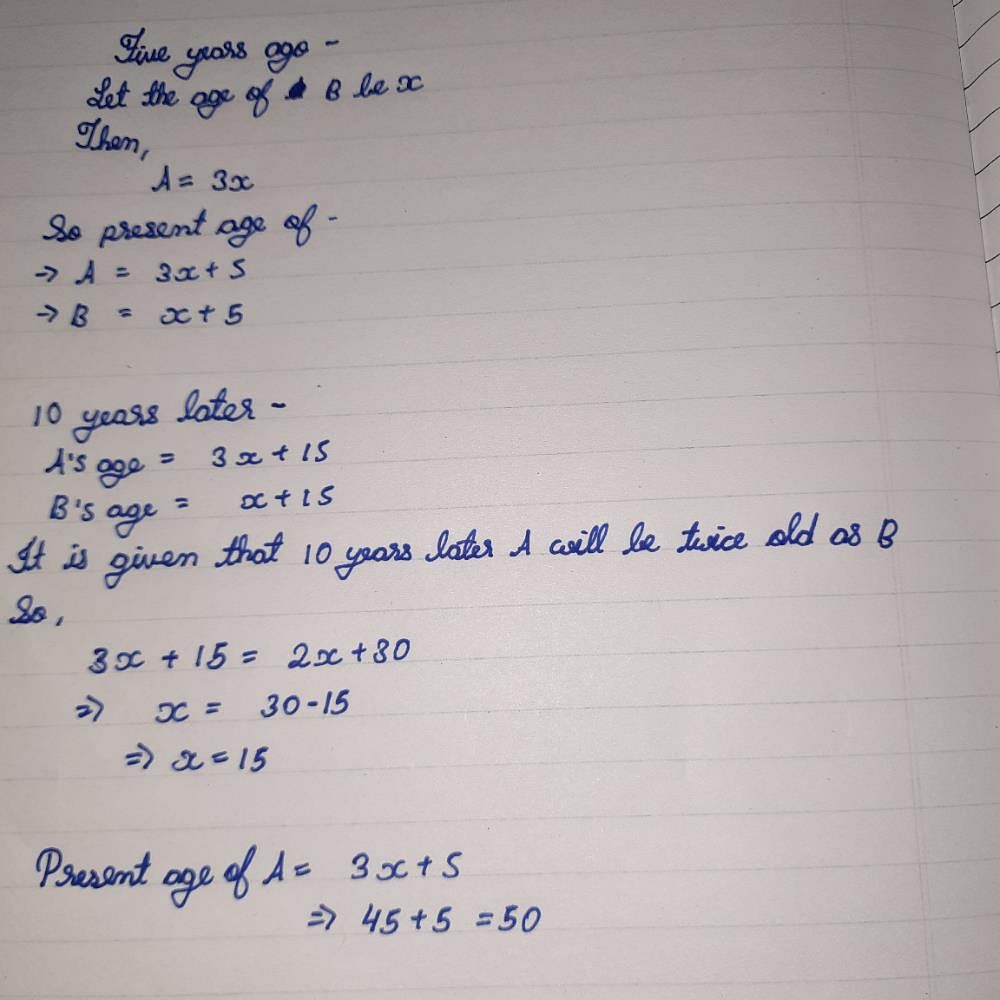 Five years ago -
Let the age of B be x
Then,
A = 3x
So present age of -
→ A = 3x + 5
→ B = x + 5
10 years later -
A's age = 3x + 15
B's age = x + 15
It is given that 10 years later A will be twice old as B
So,
3x + 15 = 2x + 30
⇒ x = 30 - 15
⇒ x = 15
Present age of A = 3x + 5
⇒ 45 + 5 = 50